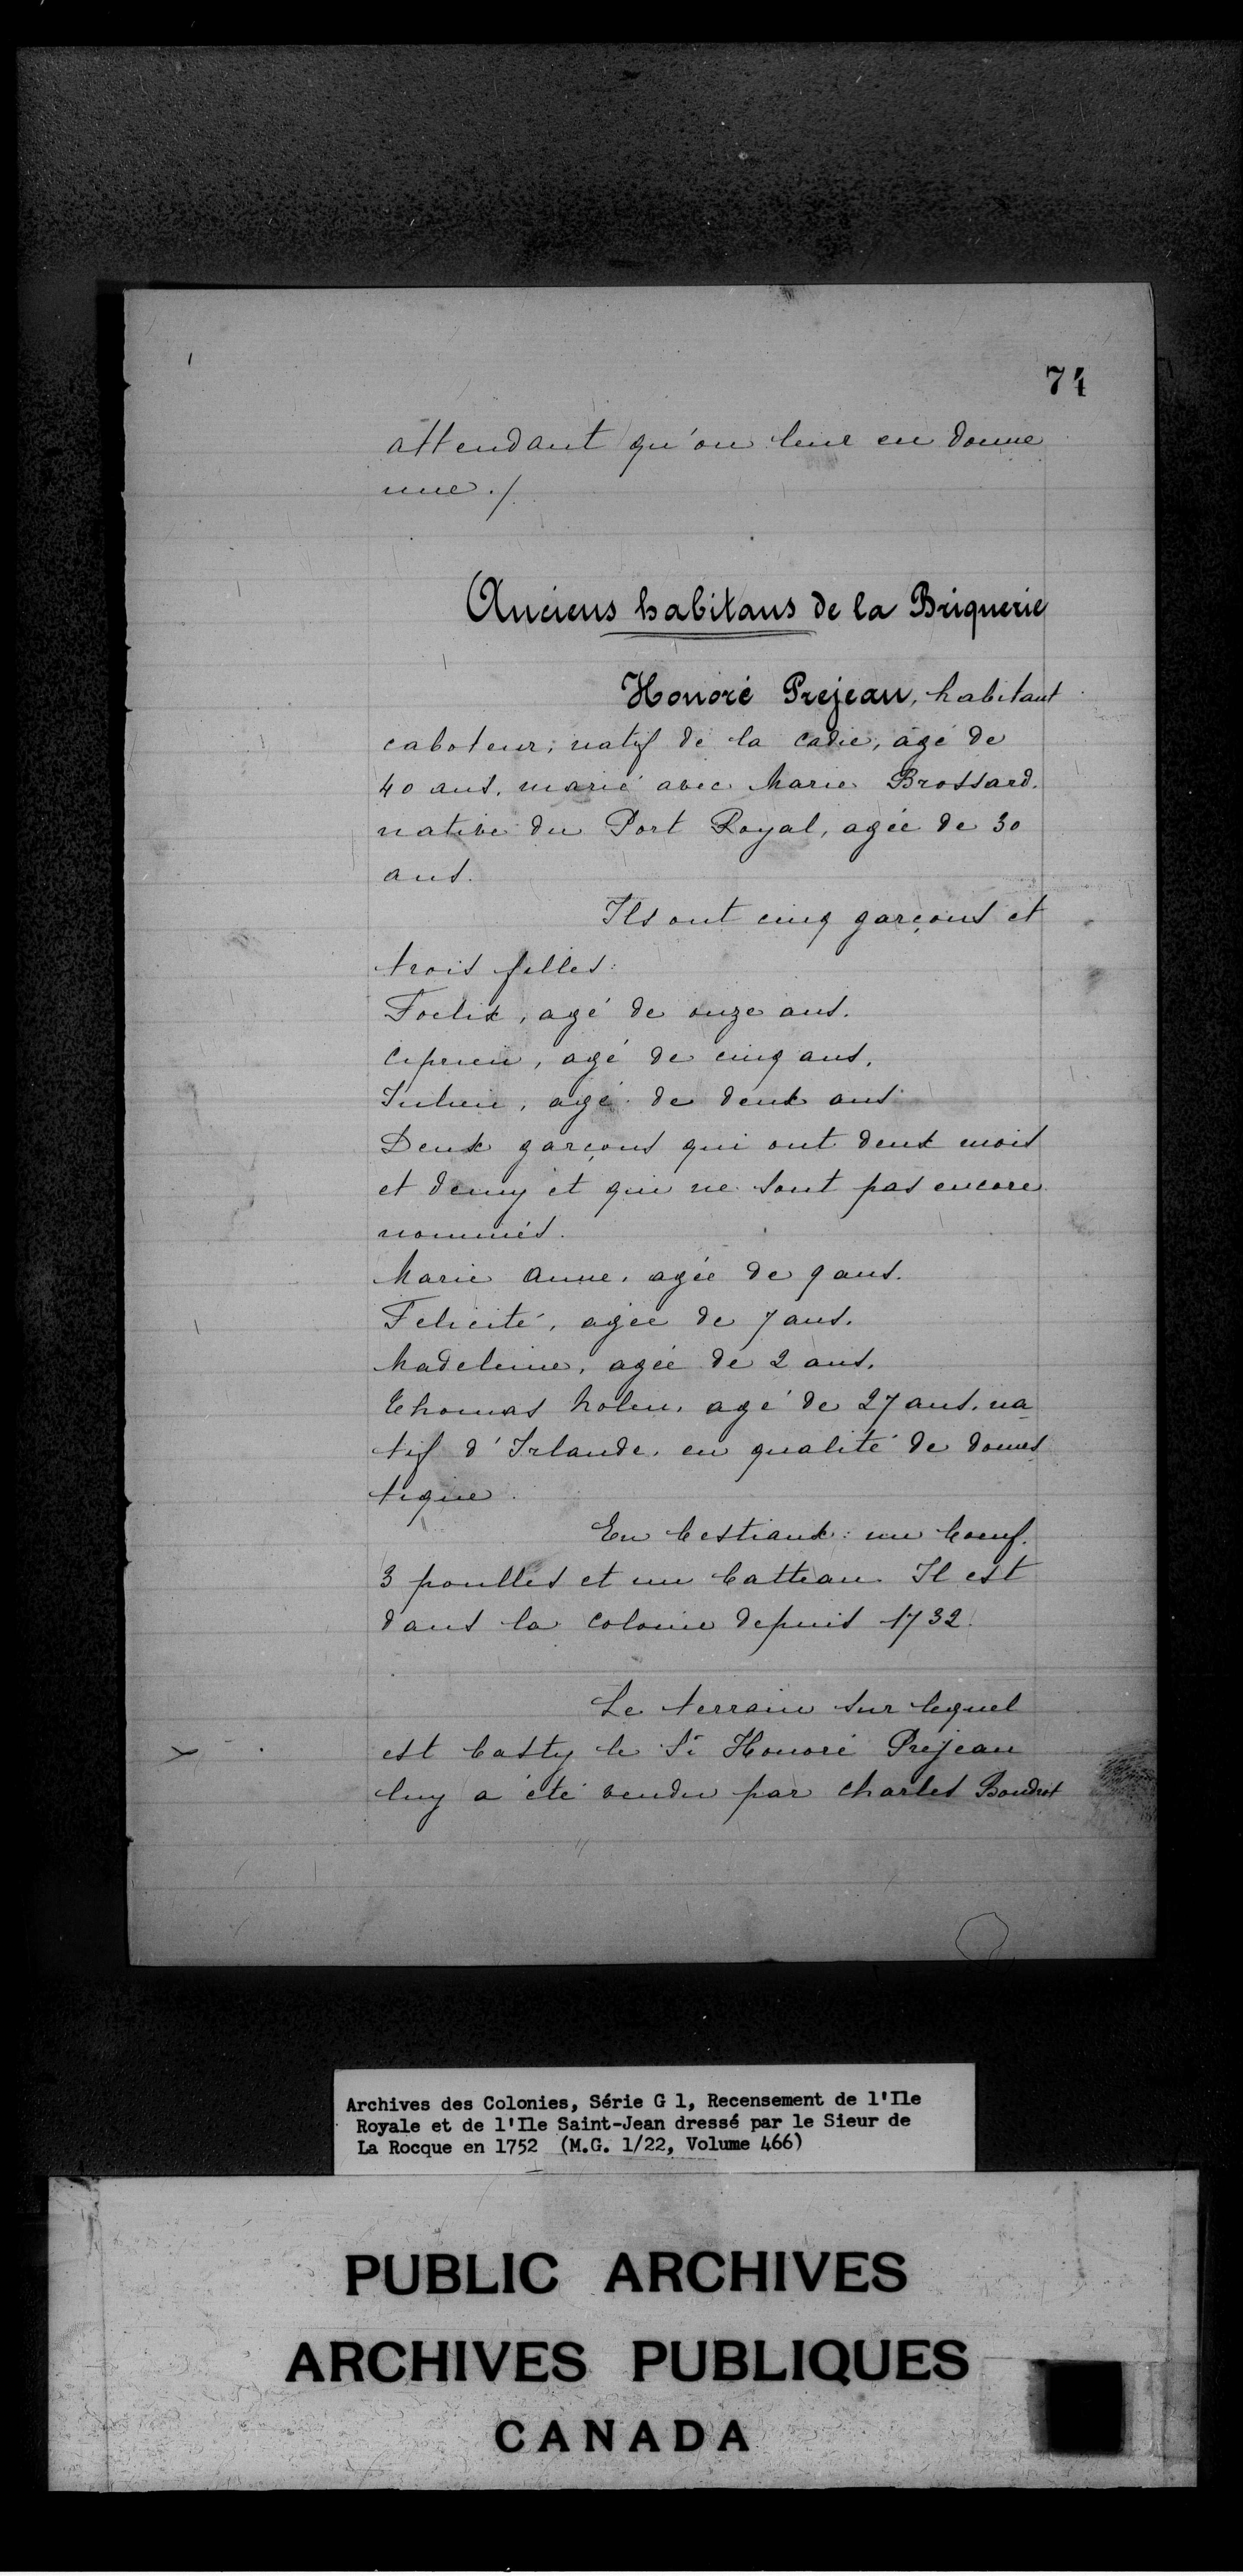 74
attendant qu'on leur en donne
une ./.
Anciens habitans de la Briquerie
Honoré Préjean, habitant
caboteur, natif de la Cadie, agé de
40 ans, marié avec Marie Brossard,
native du Port Royal, agée de 30
ans.
Ils ont cinq garçons et
trois filles:
Foelix, agé de onze ans.
Ciprien, agé de cinq ans.
Julien, agé de deux ans
Deux garçons qui ont deux mois
et demy et qui ne sont pas encore
nommés.
Marie Anne, agée de 9 ans.
Felicité, agée de 7 ans.
Madeleine, agée de 2 ans.
Thomas agé de 27 ans, na
tif d'Irlande, en qualité de domes
tique.
En bestiaux: un boeuf,
3 poulles et un batteau. Il est
dans la colonie depuis 1732.
Le terrain sur lequel
est basty le Sr Honoré Préjean
luy a été vendu par Charles Boudrot
Archives des Colonies, Série G 1, Recensement de l'Ile
Royale et de l'Ile Saint-Jean dressé par le Sieur de
La Rocque en 1752 (M.G. 1/22, Volume 466)
PUBLIC ARCHIVES
ARCHIVES PUBLIQUES
CANADA